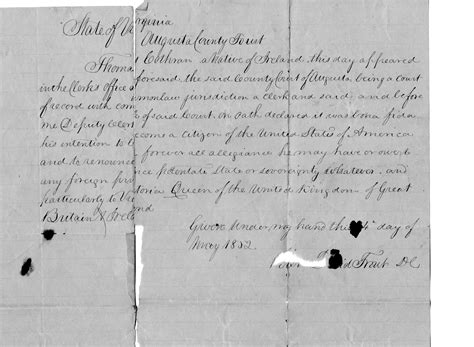 State of Virginia
Augusta County Court
Thomas Cothran a Native of Ireland this day appeared
in the Clerk's office aforesaid the said County Court of Augusta being a court
of record with common law jurisdiction a clerk and seal, and before
me Deputy Clerk of said Court, on oath declared it was bona fida
his intention to become a citizen of the United States of America
and to renounce forever all allegiance he may have or owe to
any foreign prince potentate State or soverignty whatever, and
particularly to Victoria Queen of the United Kingdom of Great
Britain & Ireland
Given under my hand the day of
May 1852
David Trout D.C.